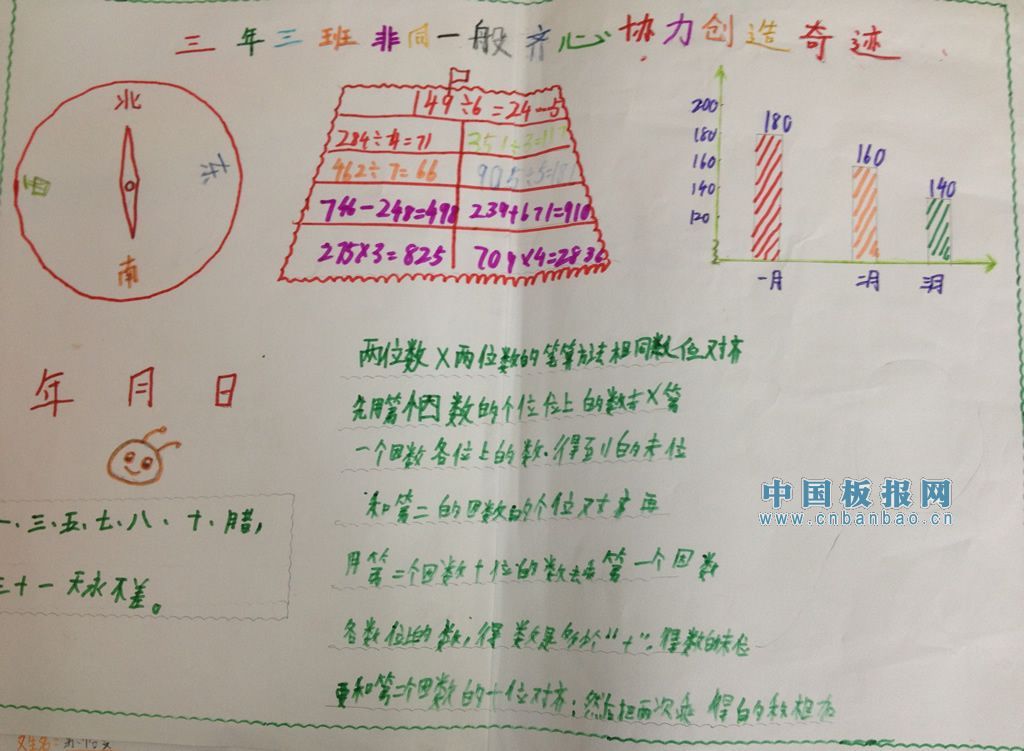 三年三班非同一般齐心协力创造奇迹
北
西
东
南
149÷6=24…5
284÷4=71
351÷3=117
462÷7=66
905÷5=181
746-248=498
239+671=910
275×3=825
709×4=2836
200
180
160
140
120
180
160
140
一月
二月
三月
年 月 日
一、三、五、七、八、十、腊,
三十一天永不差。
两位数×两位数的笔算方法相同数位对齐
先用第个因数的个位位上的数去×第
一个因数各位上的数.得到的末位
和第二的因数的个位对齐再
用第二个因数十位的数去乘第一个因数
各数位上的数,得数是多少个“十”.得数的末位
要和第二个因数的十位对齐;然后把两次乘得的数相加
中国板报网
www.cnbanbao.cn